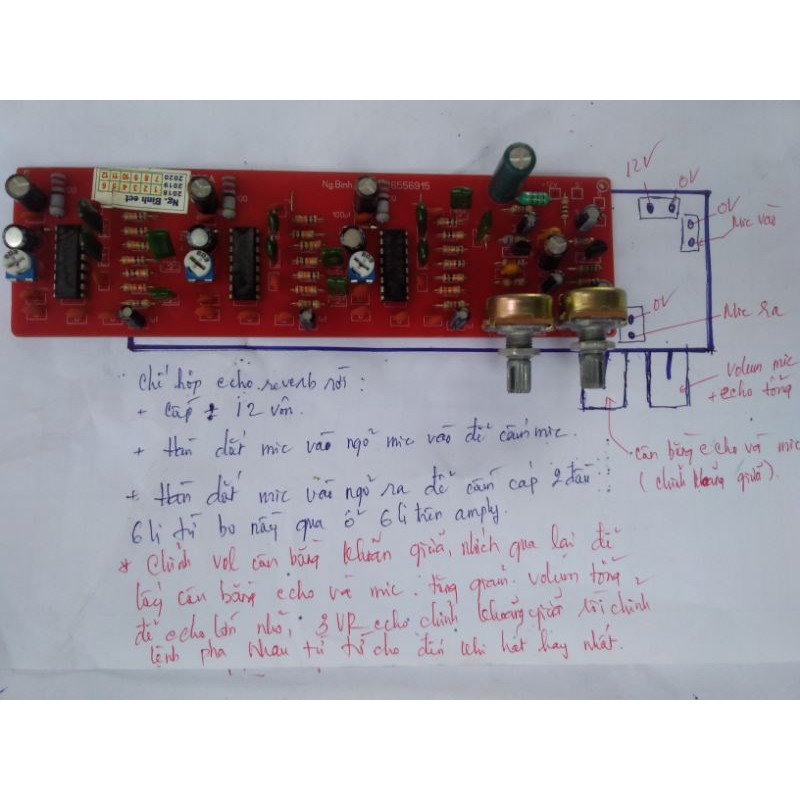 Ng. Bình ect
2018 1 2 3 4 5 6
2019 7 8 9 10 11 12
2020
Ng Bình
6556915
100u
12V
0V
0V
Mic vào
0V
Mic ra
Volum mic
+ echo tổng
cân bằng echo và mic
(chỉnh khoảng giữa).
Chế hộp echo reverb rời:
+ Cấp 12 vôn.
+ Hàn dắt mic vào ngõ mic vào để cắm mic.
+ Hàn dắt mic vào ngõ ra để cắm cáp 2 đầu
6 li từ bo này qua ổ 6 li trên amply.
* Chỉnh vol cân bằng khoản giữa, nhích qua lại để
lấy cân bằng echo và mic. tăng giảm volum tổng
để echo lớn nhỏ, 3 VR echo chỉnh khoảng giữa rồi chỉnh
lệnh pha nhau từ từ cho đến khi hát hay nhất.